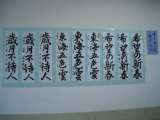 希望の新春
希望の新春
希望の新春
東海五色雲
東海五色雲
歳月不待人
歳月不待人
歳月不待人